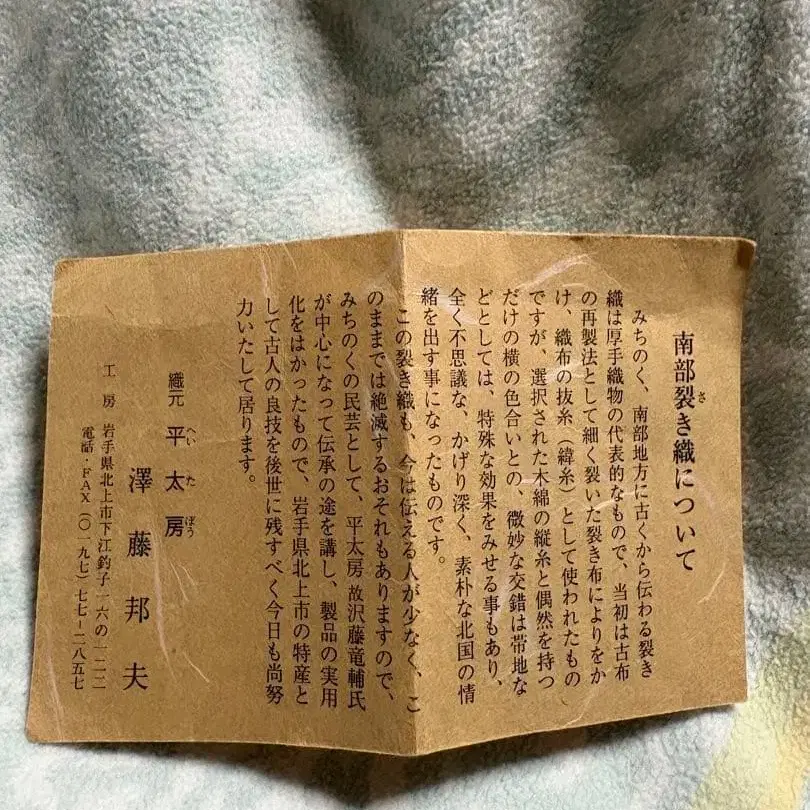 南部裂き織について
みちのく、南部地方に古くから伝わる裂き
織は厚手織物の代表的なもので、当初は古布
の再製法として細く裂いた裂き布によりをか
け、織布の抜糸（緯糸）として使われたもの
ですが、選択された木綿の縦糸と偶然を持つ
だけの横の色合いとの、微妙な交錯は帯地な
どとしては、特殊な効果をみせる事もあり、
全く不思議な、かげり深く、素朴な北国の情
緒を出す事になったものです。
この裂き織も、今は伝える人が少なく、こ
のままでは絶滅するおそれもありますので、
みちのくの民芸として、平太房故沢藤竜輔氏
が中心になって伝承の途を講し、製品の実用
化をはかったもので、岩手県北上市の特産と
して古人の良技を後世に残すべく今日も尚努
力いたして居ります。
織元 平太房
澤藤邦夫
工房 岩手県北上市下江釣子一六の一二二
電話・FAX（〇一九七）七七－二八五七